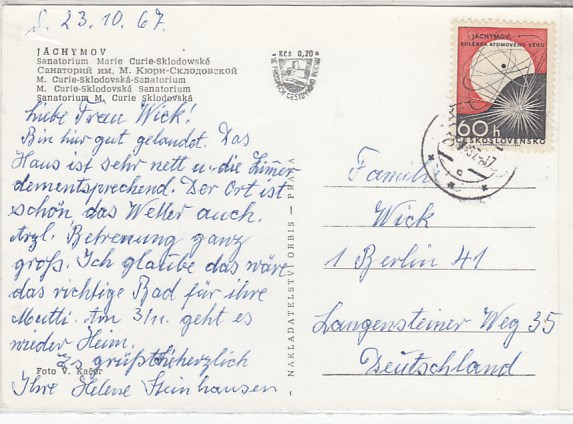 d. 23.10.67.
JÁCHYMOV
Sanatorium Marie Curie-Sklodowské
Санаторий им. М. Кюри-Склодовской
M. Curie-Sklodovská-Sanatorium
M. Curie-Sklodovská Sanatorium
Sanatorium M. Curie Sklodovská
Kčs 0,20
liebe Frau Wick!
Bin hier gut gelandet. Das
Haus ist sehr nett u. die Zimmer
dementsprechend. Der Ort ist
schön, das Wetter auch.
Arzl. Betreuung ganz
groß. Ich glaube das wäre
das richtige Bad für ihre
Mutti. Am 3/11. geht es
wieder Heim.
Es grüßt Sie herzlich
Ihre Helene Steinhausen.
Foto V. Kačer
NAKLADATELSTVÍ ORBIS — PRAHA
JÁCHYMOV
KOLÉBKA ATOMOVÉHO VĚKU
60 h
ČESKOSLOVENSKO
Familie
Wick
1 Berlin 41
Langensteiner Weg 35
Deutschland